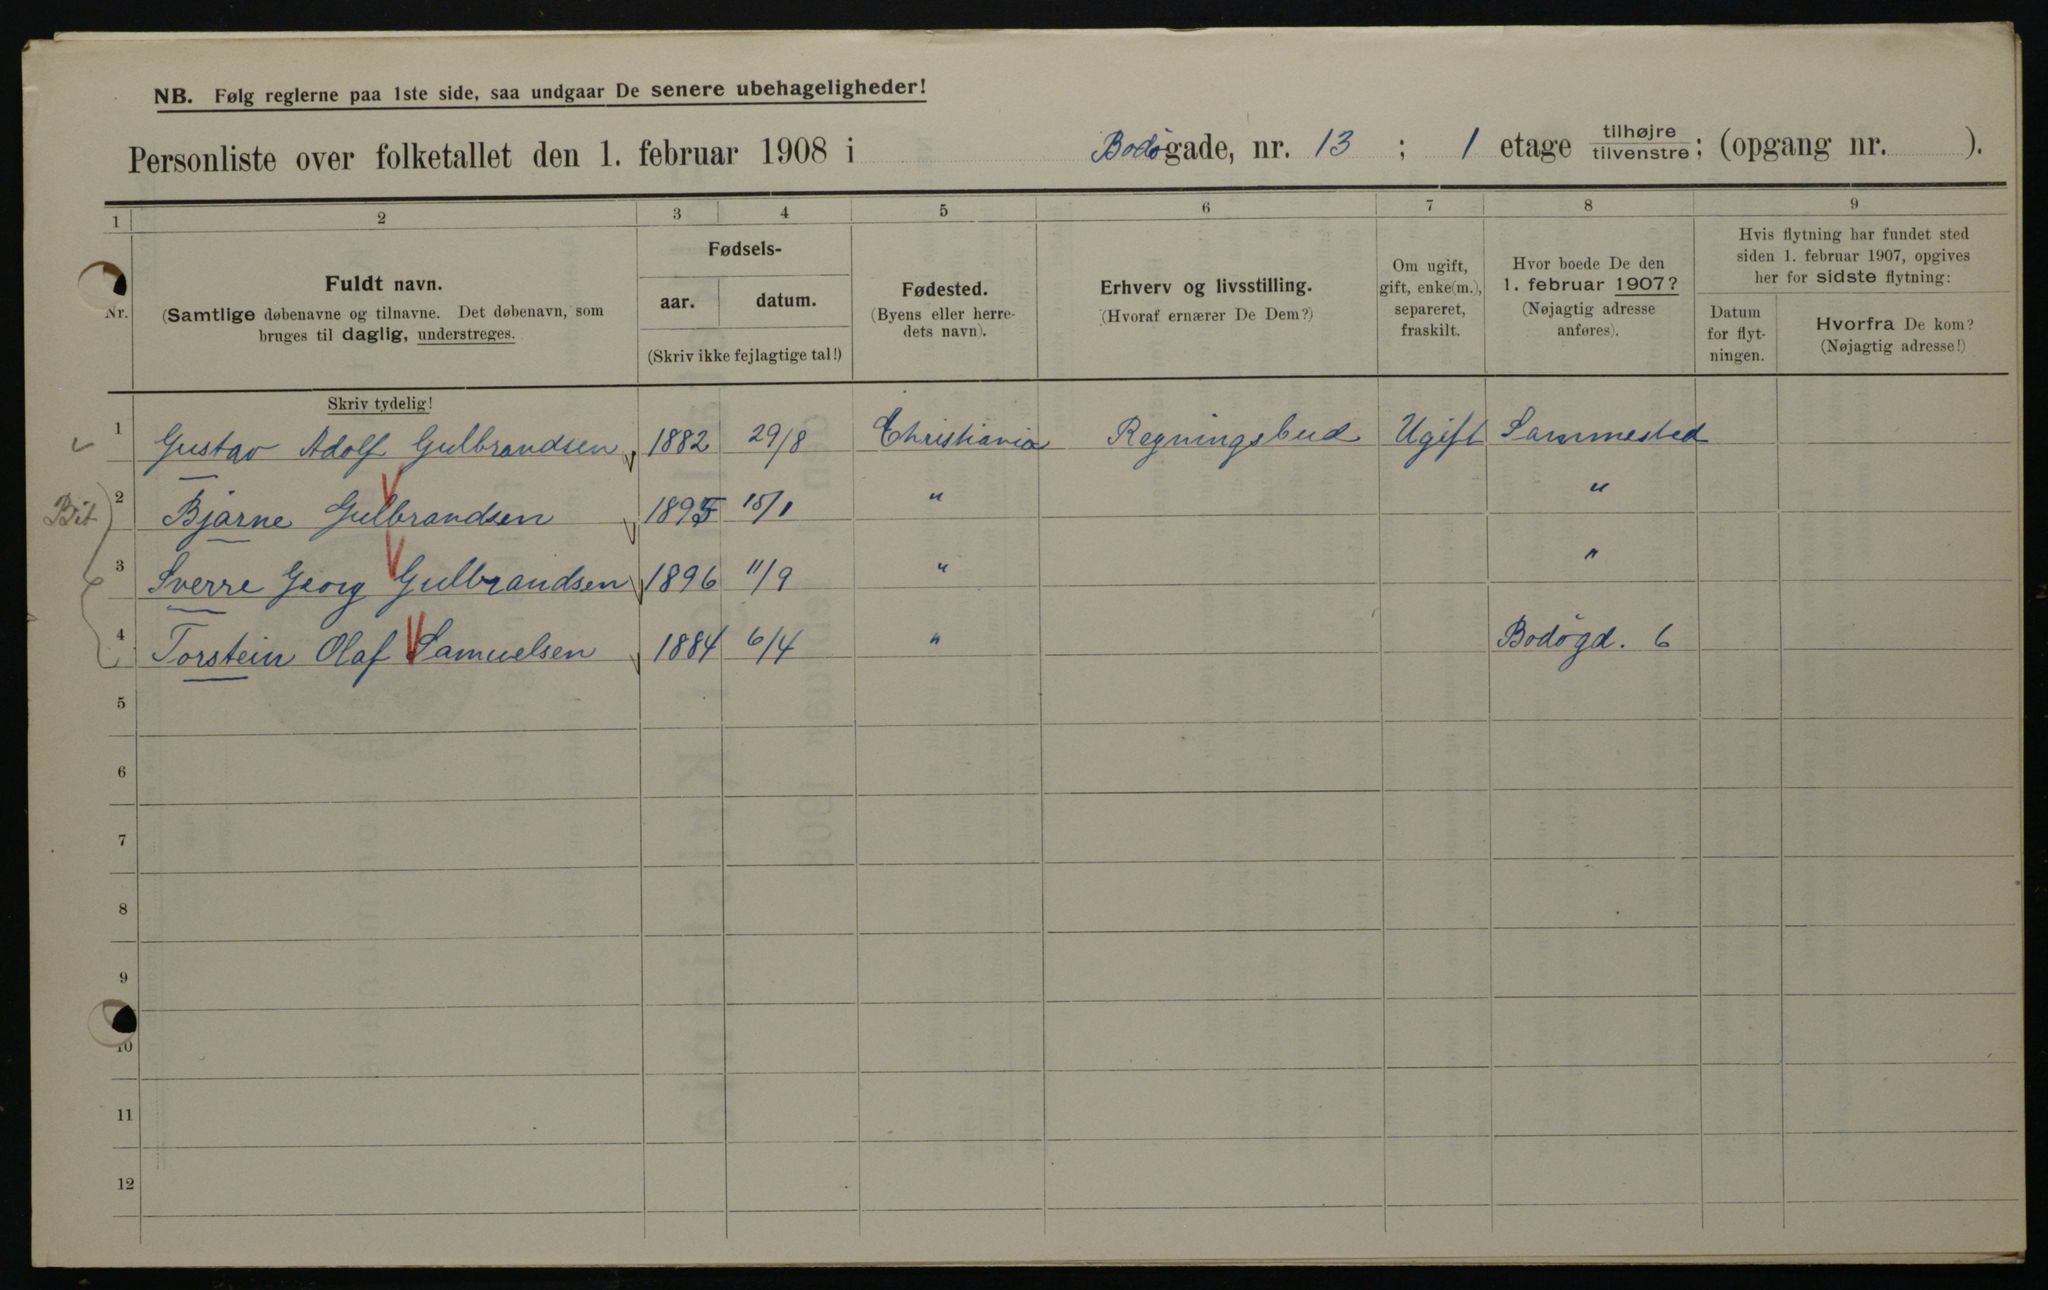 NB. Følg reglerne paa 1ste side, saa undgaar De senere ubehageligheder!
Personliste over folketallet den 1. februar 1908 i Bodøgade, nr. 13 ; 1 etage tilhøjre tilvenstre ; (opgang nr. ).
1 2 3 4 5 6 7 8 9
Nr.
Fuldt navn.
(Samtlige døbenavne og tilnavne. Det døbenavn, som
bruges til daglig, understreges.
Skriv tydelig!
Fødsels-
aar. datum.
(Skriv ikke fejlagtige tal!)
Fødested.
(Byens eller herre-
dets navn).
Erhverv og livsstilling.
(Hvoraf ernærer De Dem?)
Om ugift,
gift, enke(m.),
separeret,
fraskilt.
Hvor boede De den
1. februar 1907?
(Nøjagtig adresse
anføres).
Hvis flytning har fundet sted
siden 1. februar 1907, opgives
her for sidste flytning:
Datum
for flyt-
ningen.
Hvorfra De kom?
(Nøjagtig adresse!)
1 Gustav Adolf Gulbrandsen 1882 29/8 Christiania Regningsbud Ugift Sammested
2 Bjarne Gulbrandsen 1895 15/1 " "
3 Sverre Georg Gulbrandsen 1896 11/9 " "
4 Torstein Olaf Samuelsen 1884 6/4 " Bodøgd. 6
5
6
7
8
9
10
11
12